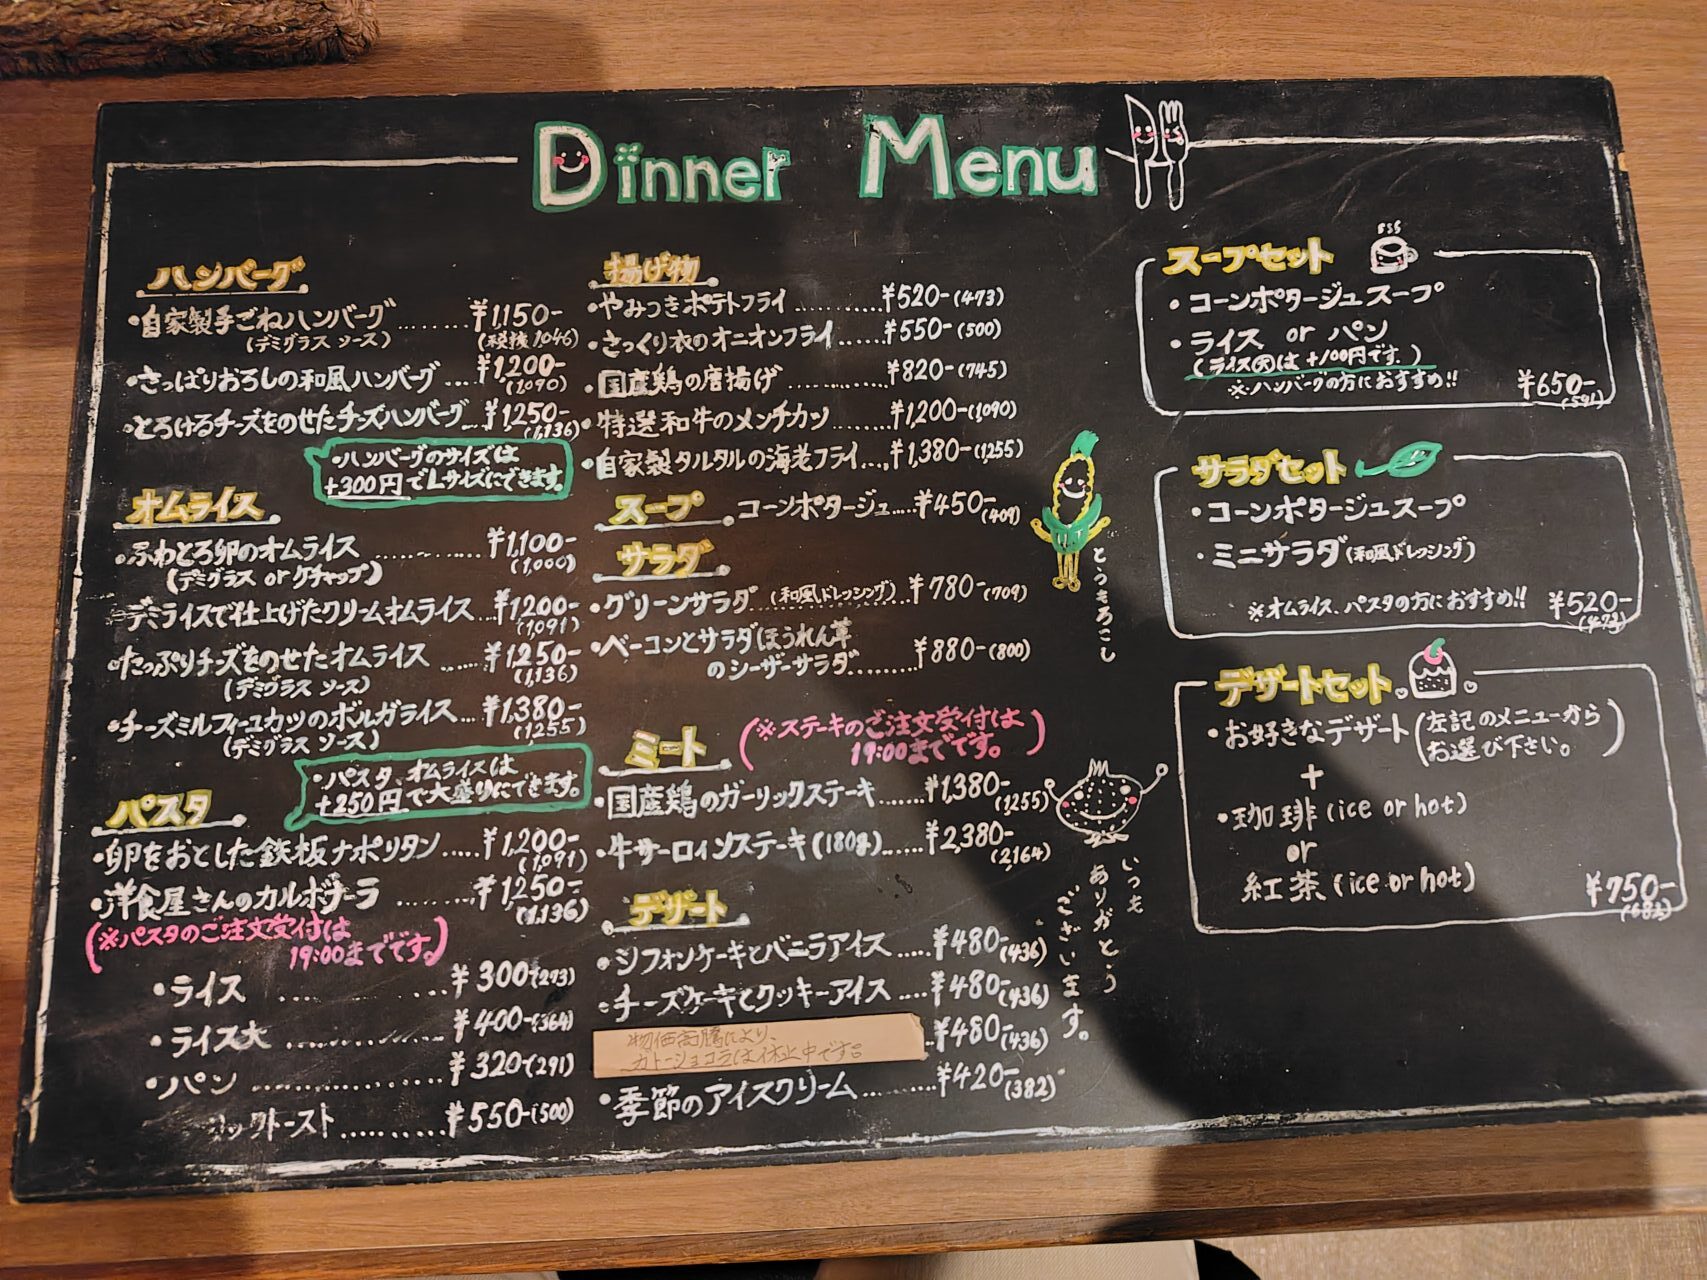 Dinner Menu
ハンバーグ
・自家製手ごねハンバーグ ........ ¥1,150-
(デミグラス ソース) (税抜1046)
・さっぱりおろしの和風ハンバーグ .... ¥1,200-
(1,090)
・とろけるチーズをのせたチーズハンバーグ.. ¥1,250-
(1,136)
・ハンバーグのサイズは
+300円でLサイズにできます。
オムライス
・ふわとろ卵のオムライス ............ ¥1,100-
(デミグラス or ケチャップ) (1,000)
・デミライスで仕上げたクリームオムライス ... ¥1,200-
(1,091)
・たっぷりチーズをのせたオムライス ...... ¥1,250-
(デミグラス ソース) (1,136)
・チーズミルフィーユカツのボルガライス... ¥1,380-
(デミグラス ソース) (1255)
・パスタ、オムライスは
+250円で大盛りにできます。
パスタ
・卵をおとした鉄板ナポリタン..... ¥1,200-
(1,091)
・洋食屋さんのカルボナーラ ........ ¥1,250-
(1,136)
(※パスタのご注文受付は
19:00までです。)
・ライス .... ¥300-(273)
・ライス大 ................ ¥400-(364)
・パン ................... ¥320-(291)
ックトースト.......... ¥550-(500)
揚げ物
・やみつきポテトフライ .......... ¥520-(473)
・さっくり衣のオニオンフライ...... ¥550-(500)
・国産鶏の唐揚げ ........... ¥820-(745)
・特選和牛のメンチカツ ...... ¥1,200-(1090)
・自家製タルタルの海老フライ.... ¥1,380-(1,255)
スープ ・コーンポタージュ.... ¥450-(409)
サラダ
・グリーンサラダ(和風ドレッシング).. ¥780-(709)
・ベーコンとサラダほうれん草
のシーザーサラダ........ ¥880-(800)
ミート (※ステーキのご注文受付は
19:00までです。)
・国産鶏のガーリックステーキ...... ¥1,380-
(1255)
・牛サーロインステーキ(180g)...... ¥2,380-
(2164)
デザート
・シフォンケーキとバニラアイス ..... ¥480-(436)
・チーズケーキとクッキーアイス ..... ¥480-(436)
物価高騰により、
ガトーショコラは休止中です。 .. ¥480-(436)
・季節のアイスクリーム ......... ¥420-(382)
とうもろこし
いつも
ありがとう
ございます。
スープセット
・コーンポタージュスープ
・ライス or パン
(ライス大は+100円です。)
※ハンバーグの方におすすめ!! ¥650-
(591)
サラダセット
・コーンポタージュスープ
・ミニサラダ(和風ドレッシング)
※オムライス、パスタの方におすすめ!! ¥520-
(473)
デザートセット
・お好きなデザート(左記のメニューから
お選び下さい。)
+
・珈琲(ice or hot)
or
紅茶(ice or hot) ¥750-
(682)